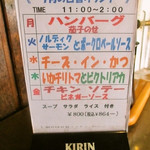 TIME 11:00~2:00
月 ハンバーグ
茄子のせ
火 ノルディック
サーモン とポークロベールソース
水 チーズ・イン・かつ
木 いかチリトマトとピクトリアカ
金 チキン ソテー
ビネガーソース
スープ サラダ ライス 付き
¥800(税込¥864~)
KIRIN